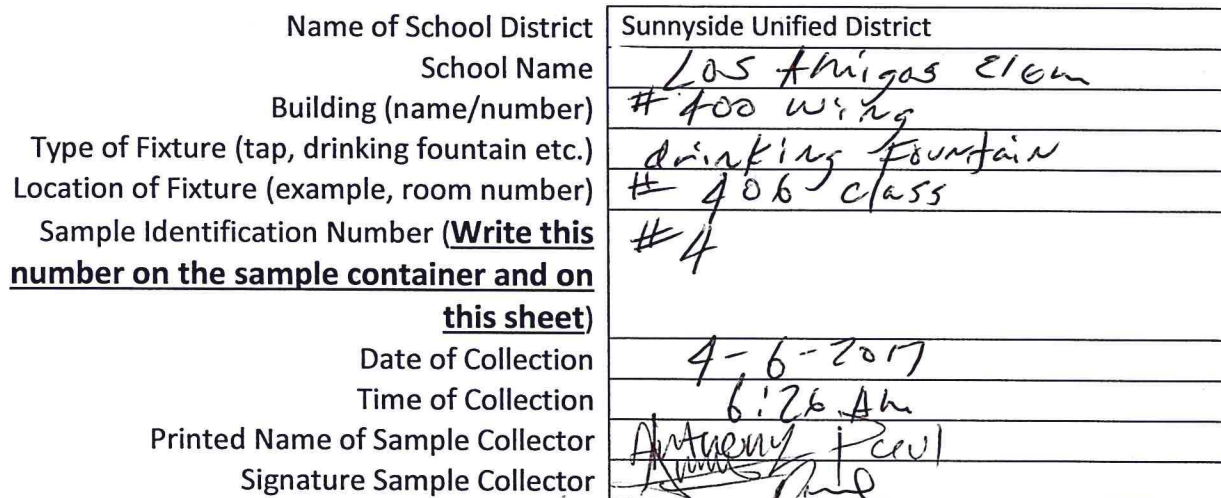 Name of School District Sunnyside Unified District
School Name Los Amigos Elem
Building (name/number) # 400 wing
Type of Fixture (tap, drinking fountain etc.) drinking Fountain
Location of Fixture (example, room number) # 406 class
Sample Identification Number (Write this #4
number on the sample container and on
this sheet)
Date of Collection 4-6-2017
Time of Collection 6:26 Am
Printed Name of Sample Collector Anthony Paul
Signature Sample Collector